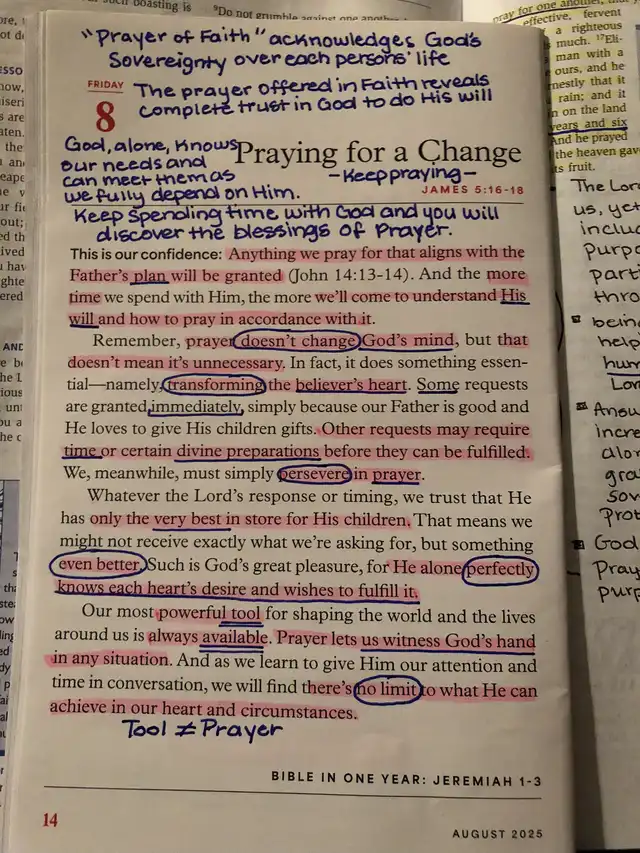 "Prayer of Faith" acknowledges God's
Sovereignty over each persons' life
FRIDAY
8
The prayer offered in Faith reveals
complete trust in God to do His will
God, alone, knows
our needs and
can meet them as
we fully depend on Him.
Praying for a Change
-Keep praying-
JAMES 5:16-18
Keep spending time with God and you will
discover the blessings of Prayer.
This is our confidence: Anything we pray for that aligns with the
Father's plan will be granted (John 14:13-14). And the more
time we spend with Him, the more we'll come to understand His
will and how to pray in accordance with it.
Remember, prayer doesn't change God's mind, but that
doesn't mean it's unnecessary. In fact, it does something essen-
tial—namely, transforming the believer's heart. Some requests
are granted immediately, simply because our Father is good and
He loves to give His children gifts. Other requests may require
time or certain divine preparations before they can be fulfilled.
We, meanwhile, must simply persevere in prayer.
Whatever the Lord's response or timing, we trust that He
has only the very best in store for His children. That means we
might not receive exactly what we're asking for, but something
even better. Such is God's great pleasure, for He alone perfectly
knows each heart's desire and wishes to fulfill it.
Our most powerful tool for shaping the world and the lives
around us is always available. Prayer lets us witness God's hand
in any situation. And as we learn to give Him our attention and
time in conversation, we will find there's no limit to what He can
achieve in our heart and circumstances.
Tool ≠ Prayer
BIBLE IN ONE YEAR: JEREMIAH 1-3
14
AUGUST 2025
pray for one another,
effective, fervent
a righteous
much. 17Eli-
man with a
ours, and he
rnestly that it
rain; and it
n on the land
years and six
And he prayed
the heaven gave
ts fruit.
The Lor
us, yet
inclu
purpo
part
thro
being
help
hum
Lor
Answ
incre
alon
gra
sov
Prot
God
Pray
purp